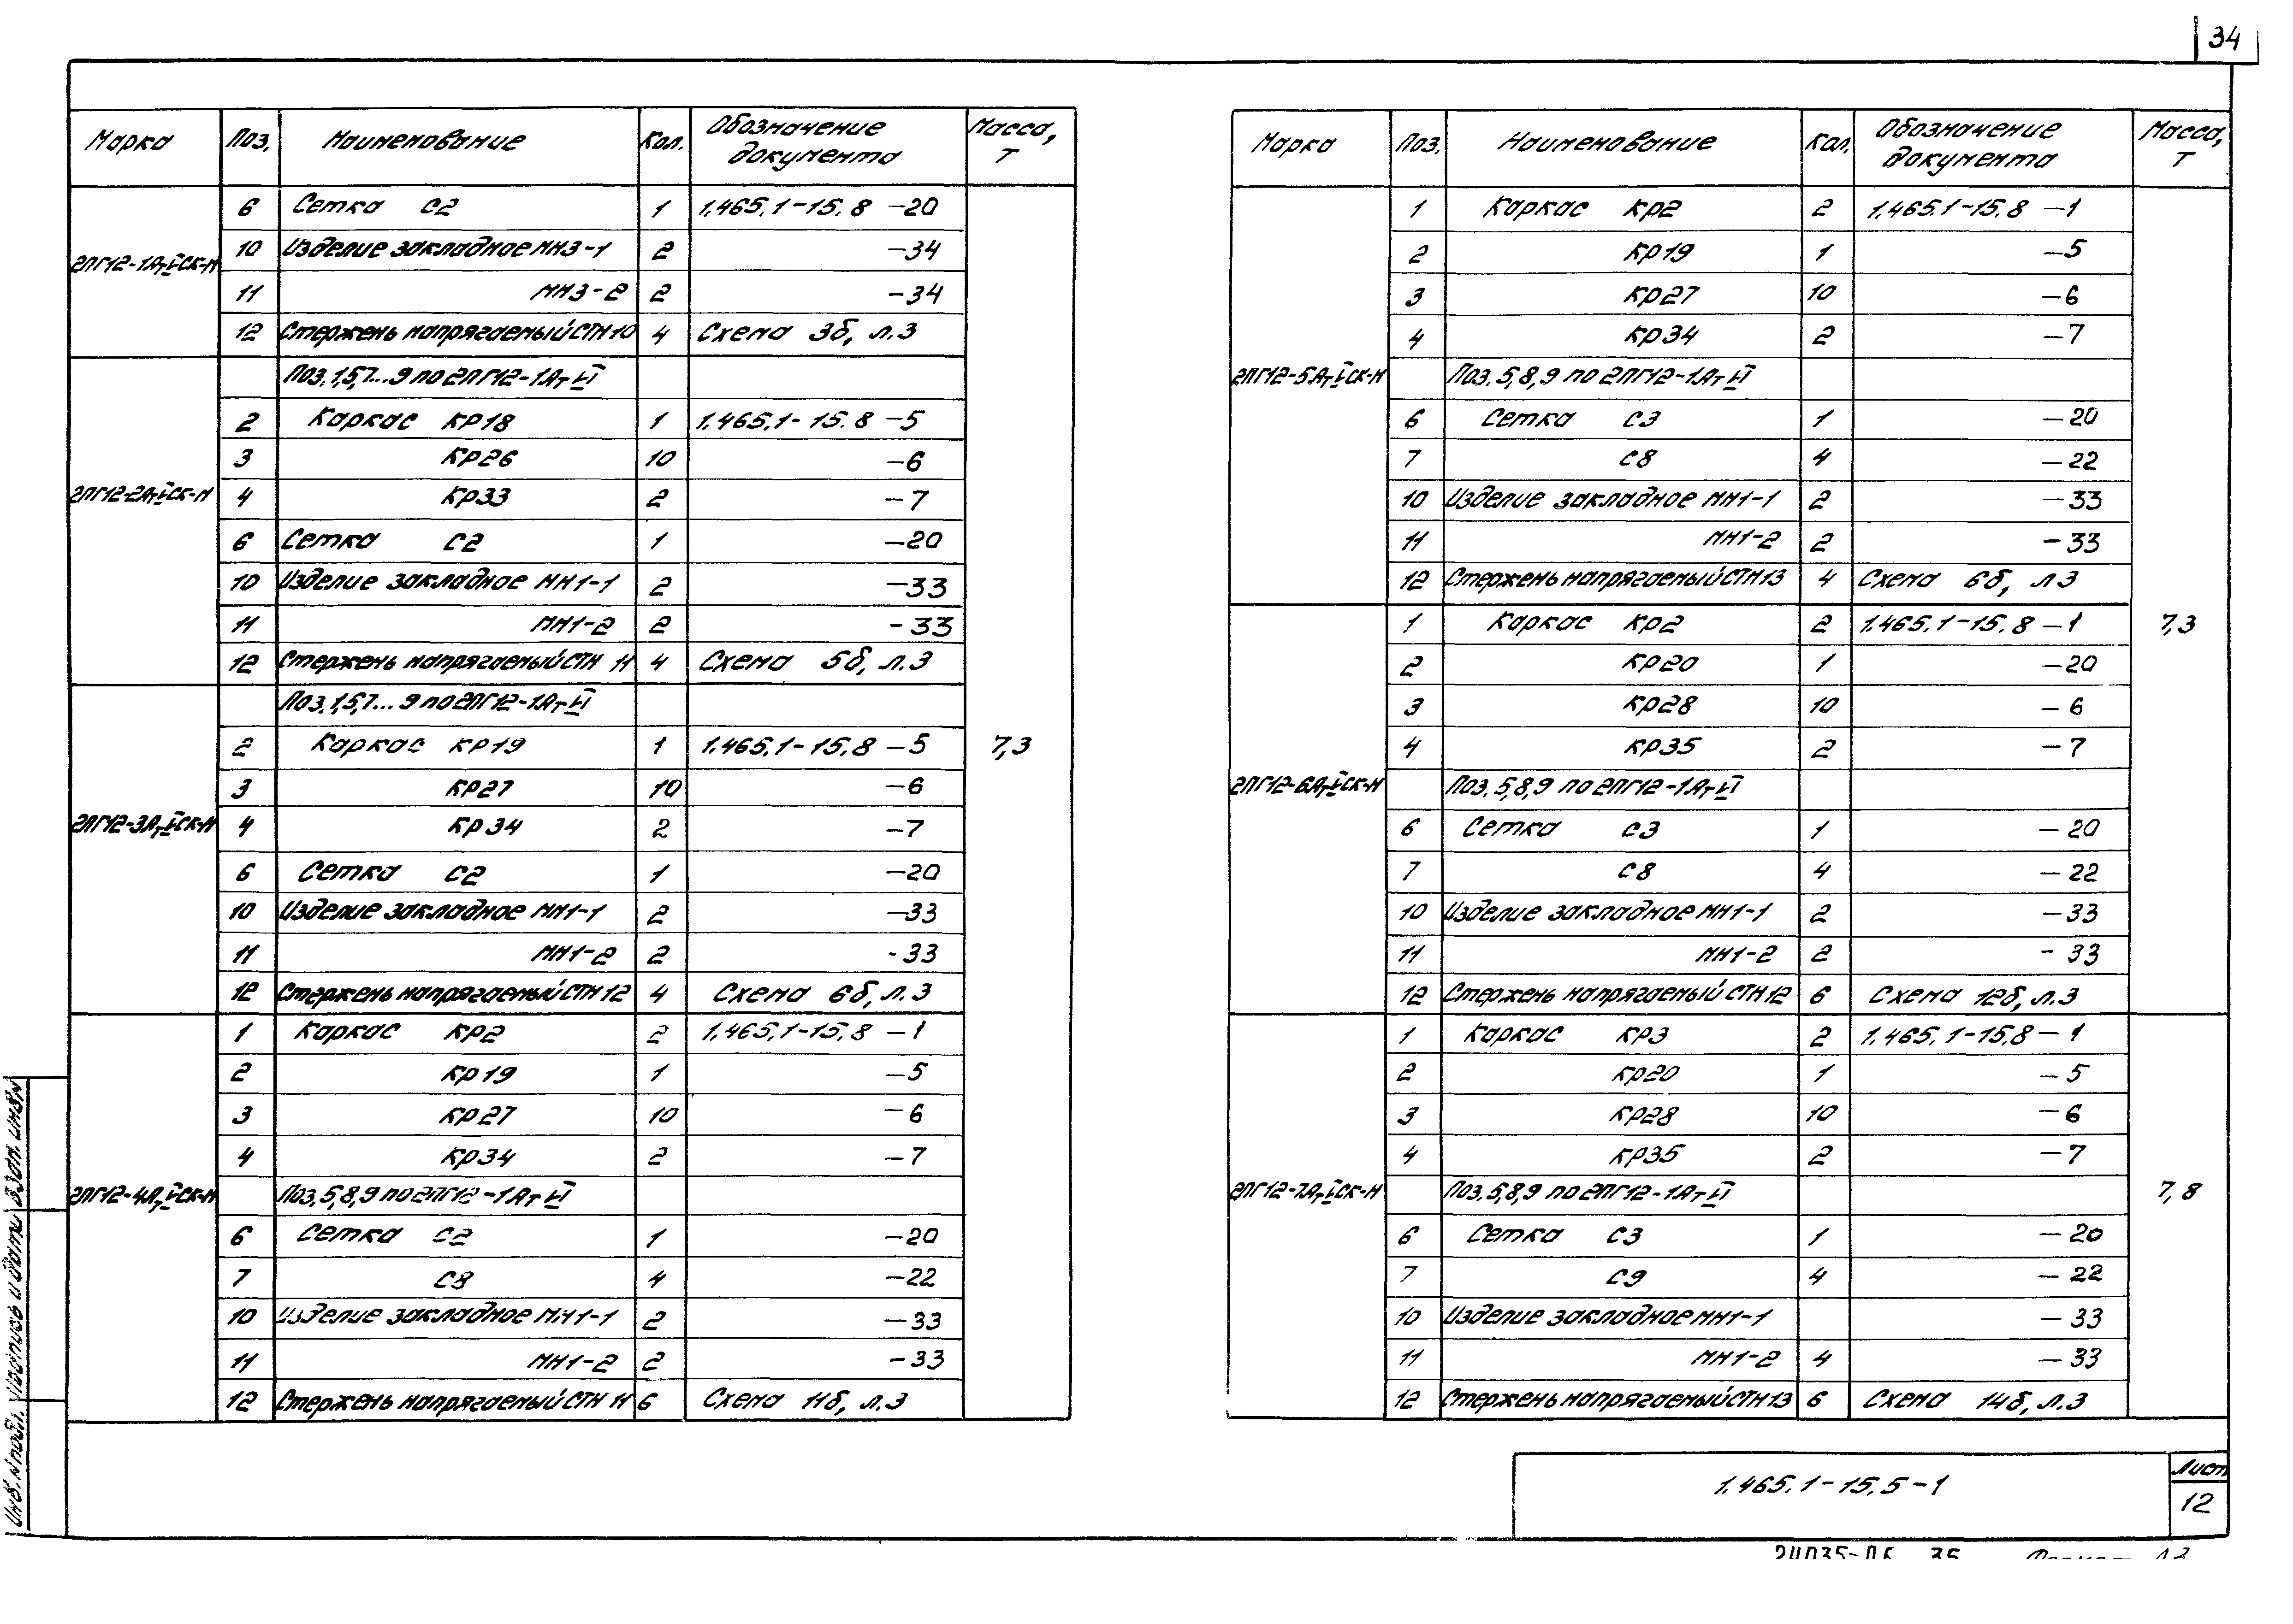 34
Марка Поз. Наименование Кол. Обозначение документа Масса, т
6 Сетка С2 1 1.465.1-15.8 -20
2ПГ12-1АтVСК-Н 10 Изделие закладное МН3-1 2 -34
11 МН3-2 2 -34
12 Стержень напрягаемый СТН10 4 Схема 3б, л.3
Поз. 1,5,7...9 по 2ПГ12-1АтVI
2 Каркас КР18 1 1.465.1-15.8 -5
3 КР26 10 -6
2ПГ12-2АтVСК-Н 4 КР33 2 -7
6 Сетка С2 1 -20
10 Изделие закладное МН1-1 2 -33
11 МН1-2 2 -33
12 Стержень напрягаемый СТН 11 4 Схема 5б, л.3
Поз. 1,5,7...9 по 2ПГ12-1АтVI
2 Каркас КР19 1 1.465.1-15.8 -5 7,3
3 КР27 10 -6
2ПГ12-3АтVСК-Н 4 КР34 2 -7
6 Сетка С2 1 -20
10 Изделие закладное МН1-1 2 -33
11 МН1-2 2 -33
12 Стержень напрягаемый СТН12 4 Схема 6б, л.3
1 Каркас КР2 2 1.465.1-15.8 -1
2 КР19 1 -5
3 КР27 10 -6
4 КР34 2 -7
2ПГ12-4АтVСК-Н Поз. 5,8,9 по 2ПГ12-1АтVI
6 Сетка С2 1 -20
7 С8 4 -22
10 Изделие закладное МН1-1 2 -33
11 МН1-2 2 -33
12 Стержень напрягаемый СТН 11 6 Схема 11б, л.3
Марка Поз. Наименование Кол. Обозначение документа Масса, т
1 Каркас КР2 2 1.465.1-15.8 -1
2 КР19 1 -5
3 КР27 10 -6
4 КР34 2 -7
2ПГ12-5АтVСК-Н Поз. 5,8,9 по 2ПГ12-1АтVI
6 Сетка С3 1 -20
7 С8 4 -22
10 Изделие закладное МН1-1 2 -33
11 МН1-2 2 -33
12 Стержень напрягаемый СТН13 4 Схема 6б, л3
1 Каркас КР2 2 1.465.1-15.8 -1 7,3
2 КР20 1 -20
3 КР28 10 -6
4 КР35 2 -7
2ПГ12-6АтVСК-Н Поз. 5,8,9 по 2ПГ12-1АтVI
6 Сетка С3 1 -20
7 С8 4 -22
10 Изделие закладное МН1-1 2 -33
11 МН1-2 2 -33
12 Стержень напрягаемый СТН12 6 Схема 12б, л.3
1 Каркас КР3 2 1.465.1-15.8 -1
2 КР20 1 -5
3 КР28 10 -6
4 КР35 2 -7
2ПГ12-7АтVСК-Н Поз. 5,8,9 по 2ПГ12-1АтVI 7,8
6 Сетка С3 1 -20
7 С9 4 -22
10 Изделие закладное МН1-1 -33
11 МН1-2 4 -33
12 Стержень напрягаемый СТН13 6 Схема 14б, л.3
Инв. N подл. Подпись и дата Взам. инв. N
1.465.1-15.5-1
Лист
12
35